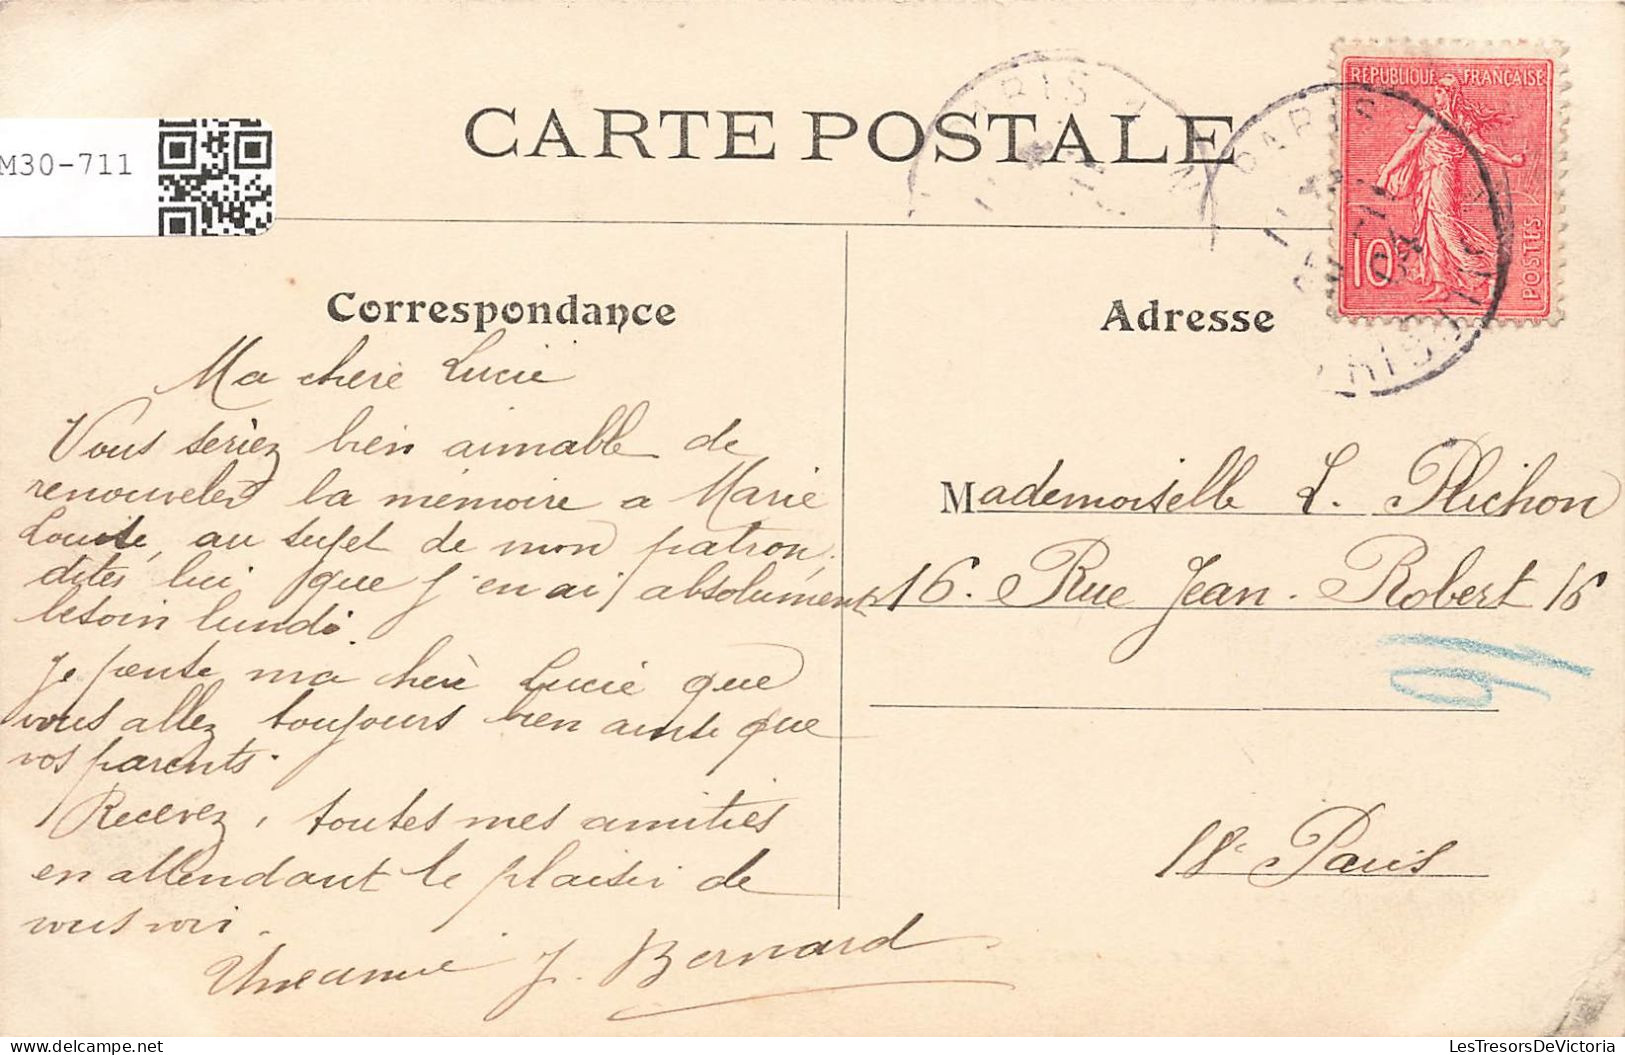 CARTE POSTALE
M30-711
RÉPUBLIQUE FRANÇAISE
10
POSTES
PARIS
PARIS
04
Correspondance
Ma chère Lucie
Vous seriez bien aimable de
renouveler la mémoire a Marie
Louise, au sujet de mon patron,
dites lui que j'en ai absolument
besoin lundi.
Je pense ma chère Lucie que
vous allez toujours bien ainsi que
vos parents.
Recevez, toutes mes amitiés
en attendant le plaisir de
vous voir.
Une amie J. Bernard
Adresse
Mademoiselle L. Plichon
16. Rue Jean-Robert 16
16
18e Paris
LesTresorsDeVictoria